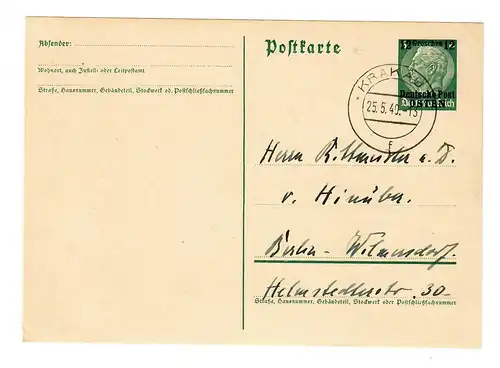 Absender:
Wohnort, auch Zustell- oder Leitpostamt
Straße, Hausnummer, Gebäudeteil, Stockwerk od. Postschließfachnummer
Postkarte
12 Groschen 12
Deutsche Post
OSTEN
KRAKAU
25.5.40.-13
f
Herrn Rittmeister a. D.
v. Hinüber
Berlin - Wilmersdorf.
Helmstedterstr. 30.
Straße, Hausnummer, Gebäudeteil, Stockwerk oder Postschließfachnummer